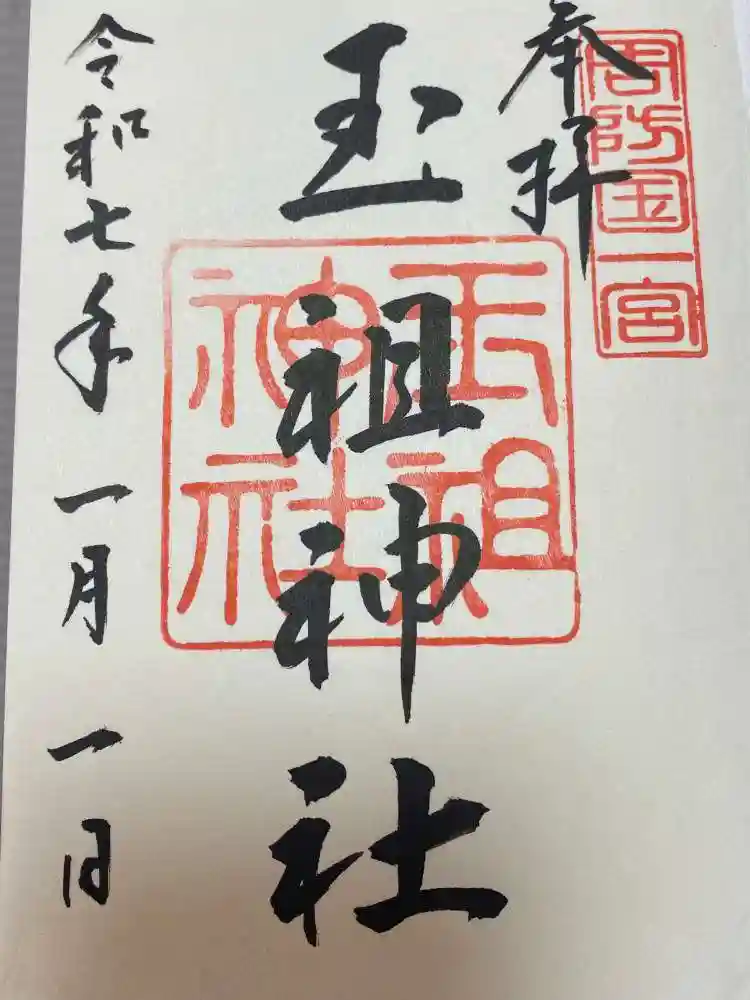 奉拝
周防国一宮
玉祖神社
玉祖神社
令和七年一月一日